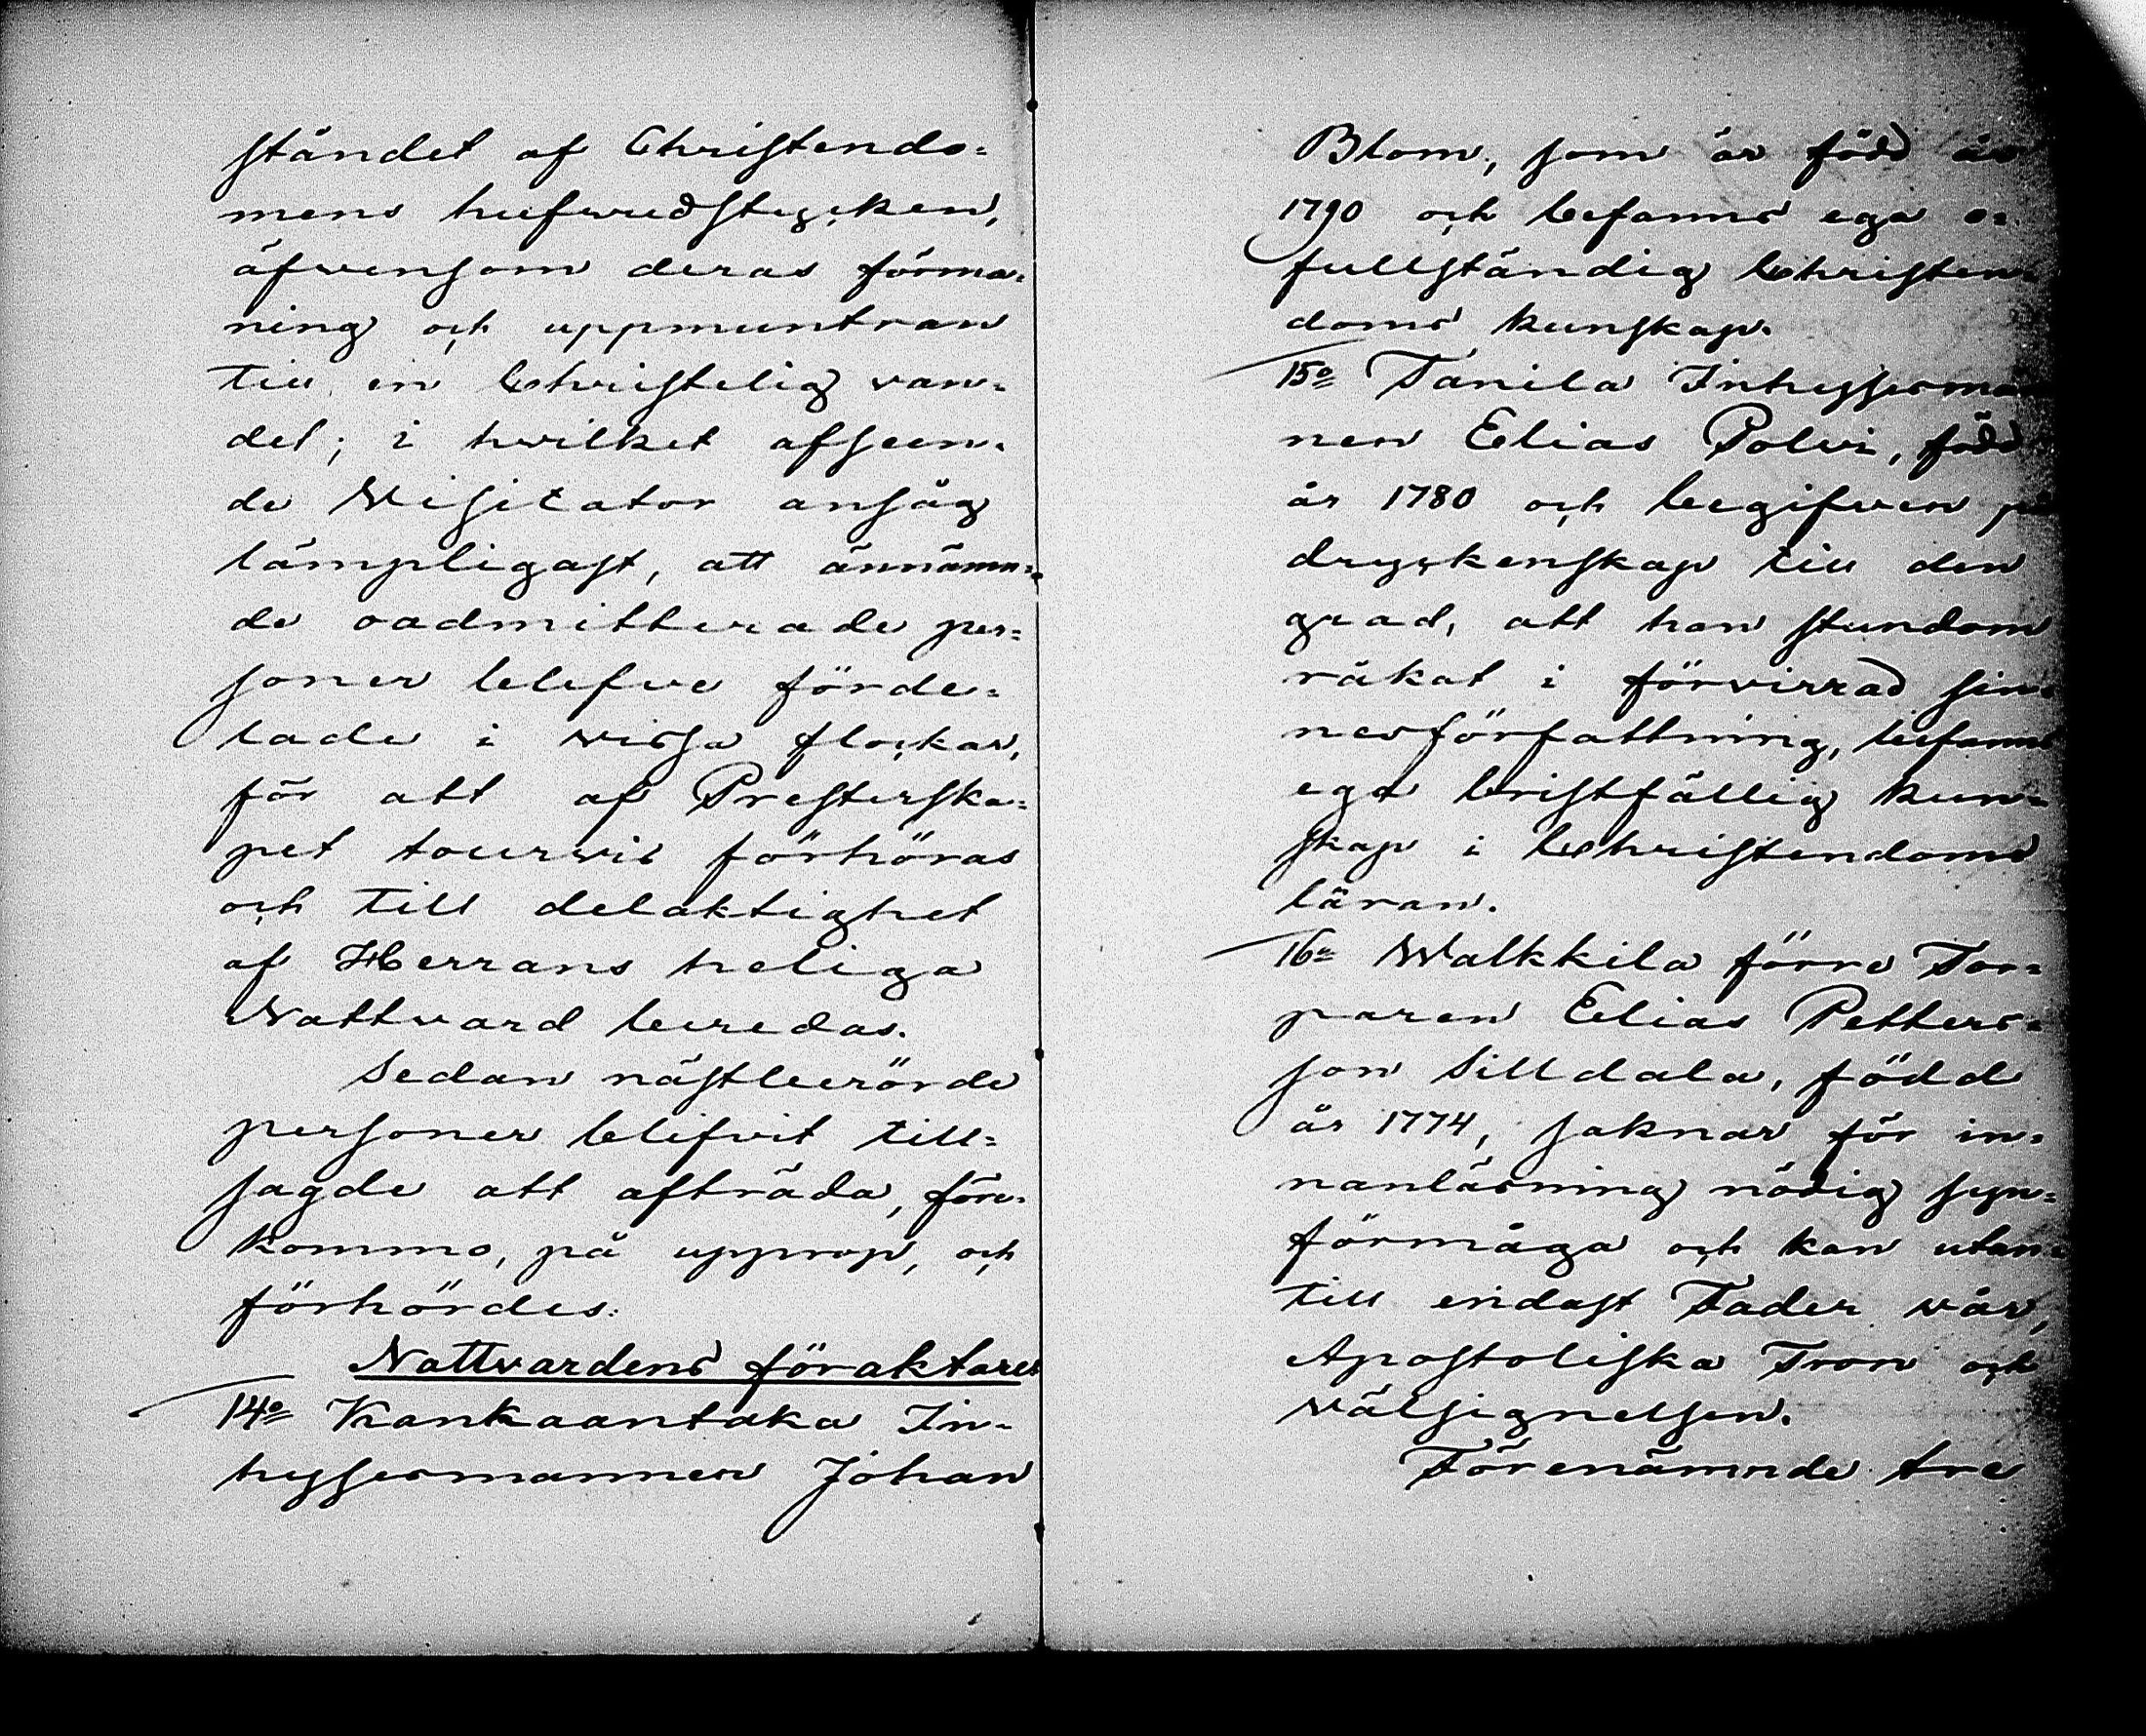 ståndet af Christendo=
mens hufwudstycken,
äfwensom deras förma=
ning och uppmuntran
till en Christelig van=
del; i hwilket afseen=
de Visitator ansåg
lämpligast, att ännämn=
de oadmitterade per=
soner blefve förde=
lade i wissa flockar,
för att af Presterska=
pet tourvis förhöras
och till delaktighet
af Herrans heliga
Nattvard beredas.
Sedan nästberörde
personer blifvit till=
sagde att afträda, före=
kommo, på upprop, och
förhördes:
Nattvardens föraktare
14o Kankaantaka In=
hysesmannen Johan
Blom, som är född år
1790 och befanns ega o=
fullständig Christen=
doms kunskap.
15o Tanila Inhysesman
nen Elias Polvi, född
år 1780 och begifven på
dryckenskap till den
grad, att han stundom
råkat i förvirrad sin=
nesförfattning, befanns
ega bristfällig kun=
skap i Christendoms
läran.
16o Walkkila förre Tor=
paren Elias Petters=
son Silldala, född
år 1774, saknar för in=
nanläsning nödig syn=
förmåga och kan utan=
till endast Fader vår,
Apostoliska Tron och
välsignelsen.
Förenämnde tre